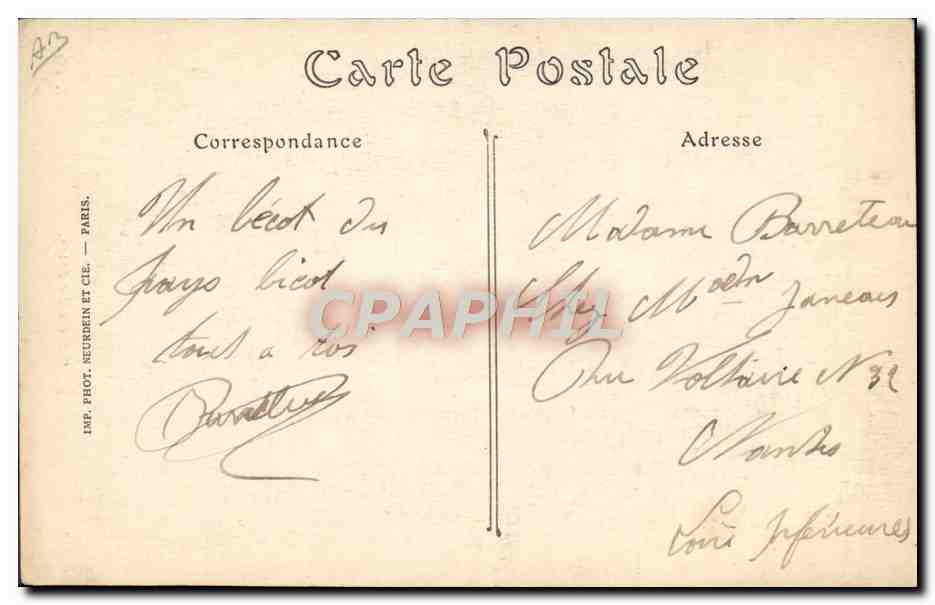 AB
Carte Postale
Correspondance
Un bécot du
pays bicot
tout a toi
Barreteau
Adresse
Madame Barreteau
Chez Madm Janeau
Rue Voltaire N 32
Nantes
Loire Inférieures
IMP. PHOT. NEURDEIN ET CIE. — PARIS.
CPAPHIL